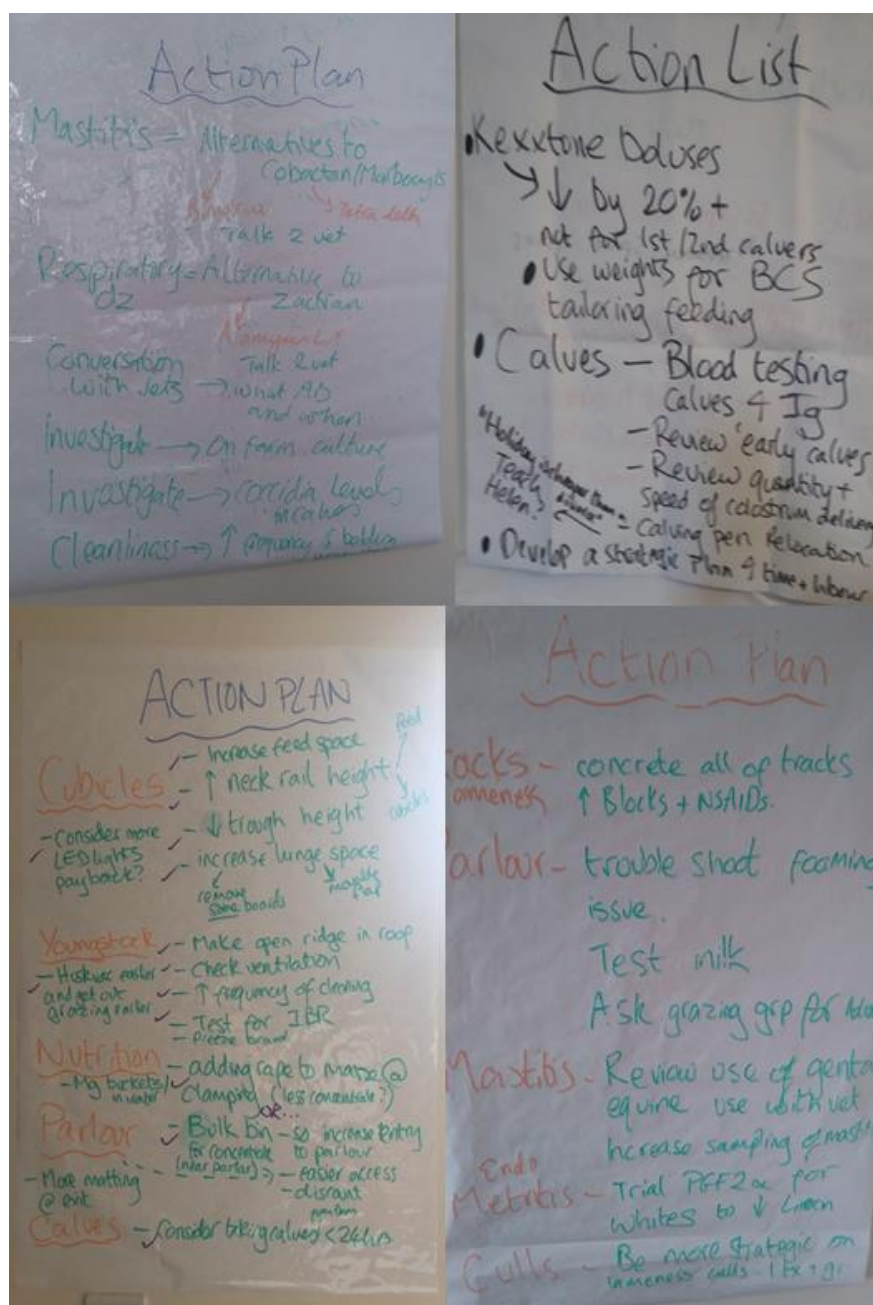 Action Plan
Mastitis = Alternatives to
Cobactan/Marbocyl
Talk 2 vet
Respiratory = Alternative to
dz Zactran
Talk 2 vet
Conversation
with vets → what AB
and when
Investigate → On farm culture
Invastigate → coccidia levels
in calves
Cleanliness → ↑ frequency of bedding
Action List
• Kexxtone boluses
↓ by 20% +
not for 1st/2nd calvers
• Use weights for BCS
tailoring feeding
• Calves – Blood testing
calves 4 Ig
– Review early calves
– Review quantity +
speed of colostrum delivery
– Calving pen Relocation
"Holiday is cheaper than
divorce"
Helen.
• Develop a strategic Plan 4 time + labour
ACTION PLAN
Cubicles
– Increase feed space
– ↑ neck rail height
feed
cubicles
– ↓ trough height
– increase lunge space
remove
some boards
– Consider more
LED lights
payback?
Youngstock
– Make open ridge in roof
– Check ventilation
– ↑ frequency of cleaning
– Test for IBR
– Freeze brand
– Huskvac earlier
and get out
grazing earlier
Nutrition
– adding rape to maize @
clamping (less concentrate?)
– Mg buckets/
in water
or...
Parlour
– Bulk bin – so increase entry
for concentrate to parlour
(near parlour) ⇒ – easier access
– More matting
@ exit
Calves – Consider taking calves < 24hrs
Action Plan
racks – concrete all of tracks
ameness ↑ Blocks + NSAIDs.
Parlour – trouble shoot foaming
issue.
Test milk
Ask grazing grp for
Mastitis – Review use of genta
equine use with vet
Increase sampling of
Endo
Metritis – Trial PGF2α for
whites to ↓
Culls – Be more strategic on
lameness culls